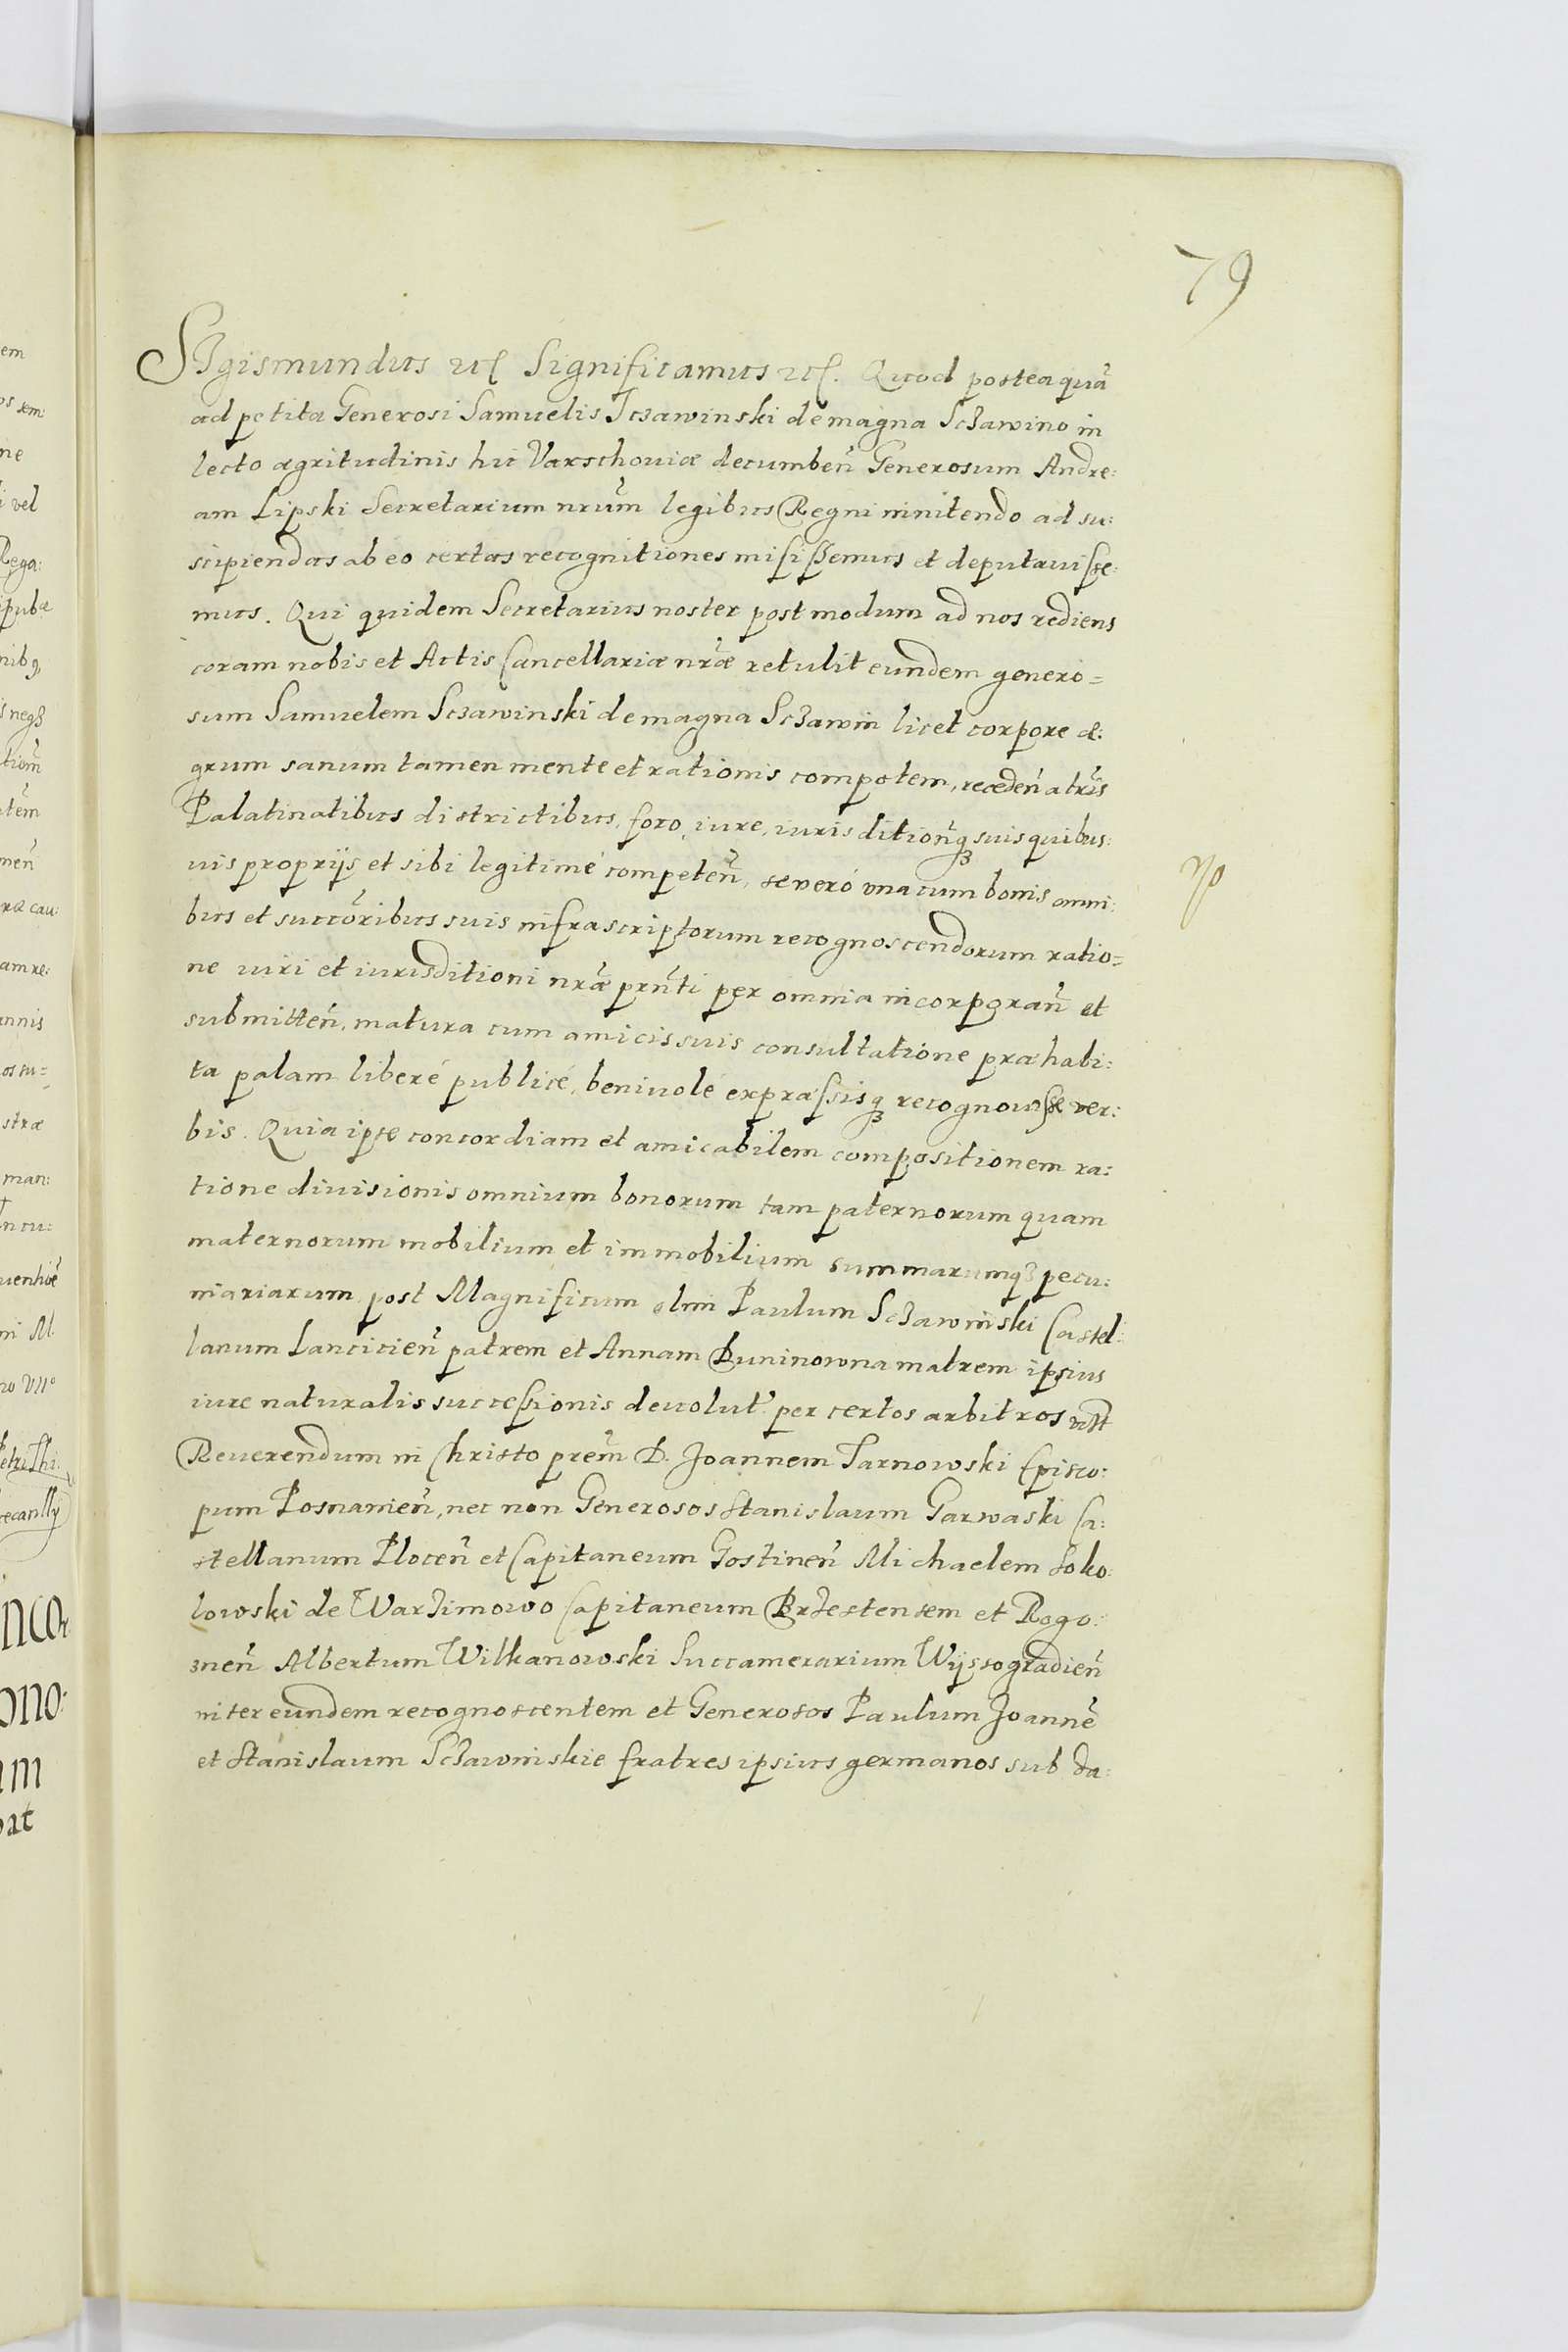 79
SIgismundus etc Significamus etc. Quod posteaquã
ad petita Generosi Samuelis Sczawinski de magna Sczawino in
lecto ægritudinis hic Varschouiæ decumbeñ Generosum Andre:
am Lipski Secretarium nrũm legibus Regni innitendo ad su:
scipiendas ab eo certas recognitiones misissemus et deputauisse:
mus. Qui quidem Secretarius noster postmodum ad nos rediens
coram nobis et Actis Cancellariæ nrãe retulit eundem genero=
sum Samuelem Sczawinski de magna Sczawin licet corpore æ:
grum sanum tamen mente et rationis compotem, recedeñ a trĩs
Palatinatibus districtibus, foro, iure, iurisditioñq3 suis quibus:
uis proprijs et sibi legitimé competeñ, se veró vna cum bonis omni:
no
bus et succõribus suis infrascriptorum recognoscendorum ratio=
ne iuri et iurisditioni nrãe prñti per omnia incorporañ et
submitteñ, matura cum amicis suis consultatione præhabi:
ta palam liberé publicé, beniuolé expræssisq3 recognouisse ver:
bis. Quia ipse concordiam et amicabilem compositionem ra:
tione diuisionis omnium bonorum tam paternorum quam
maternorum mobilium et immobilium summarumq3 pecu:
niariarum post Magnificum olim Paulum Sczawinski Castel:
lanum Lancicieñ patrem et Annam Duninowna matrem ipsius
iure naturalis successionis deuolut. per certos arbitros vtst
Reuerendum in Christo prẽm D. Joannem Tarnowski Episco:
pum Posnanieñ, nec non Generosos Stanislaum Garwaski Ca:
stellanum Ploceñ et Capitaneum Gostineñ Michaelem Soko:
lowski de Warzimowo Capitaneum Brzestensem et Rogo:
zneñ Albertum Wilkanowski Succamerarium Wyssogradieñ
inter eundem recognoscentem et Generosos Paulum Joannẽ
et Stanislaum Sczawinskie fratres ipsius germanos sub da: